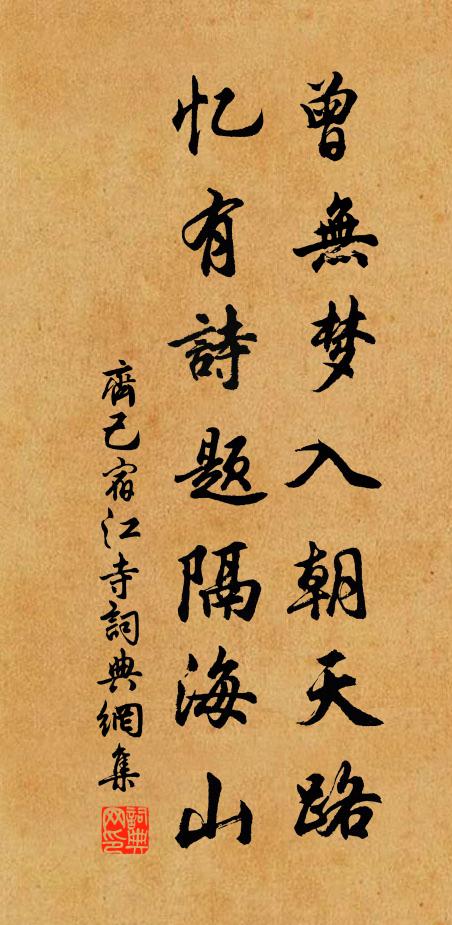 曾無梦入朝天路
忆有詩題隔海山
齊己宿江寺詞典網集
詞典网印